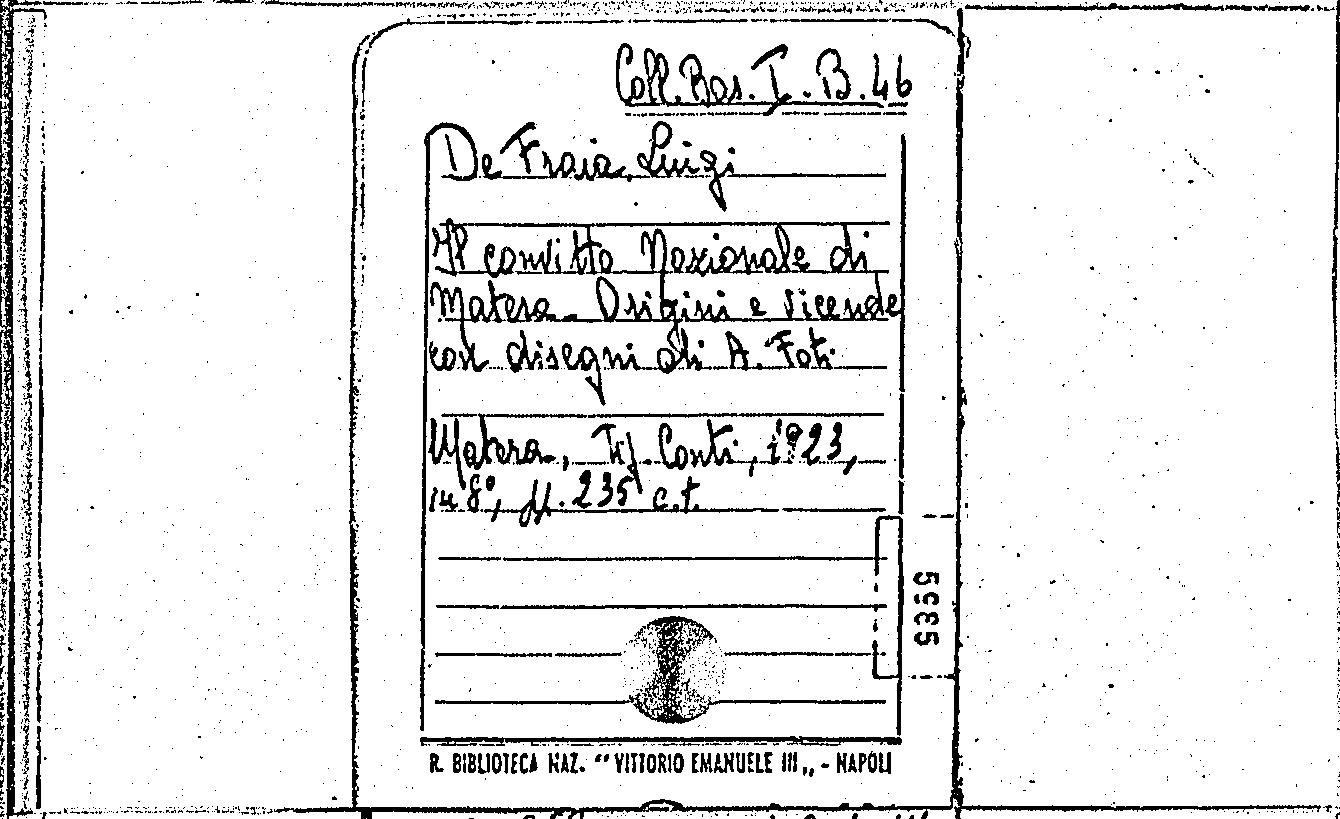 Coll. Bas. I. B. 46
De Fraia Luigi
Il convitto Nazionale di
Matera - Origini e vicende
con disegni di A. Foti
Matera, Tip. Conti, 1923,
in 8°, pp. 235 c.t.
R. BIBLIOTECA NAZ. “ VITTORIO EMANUELE III „ - NAPOLI